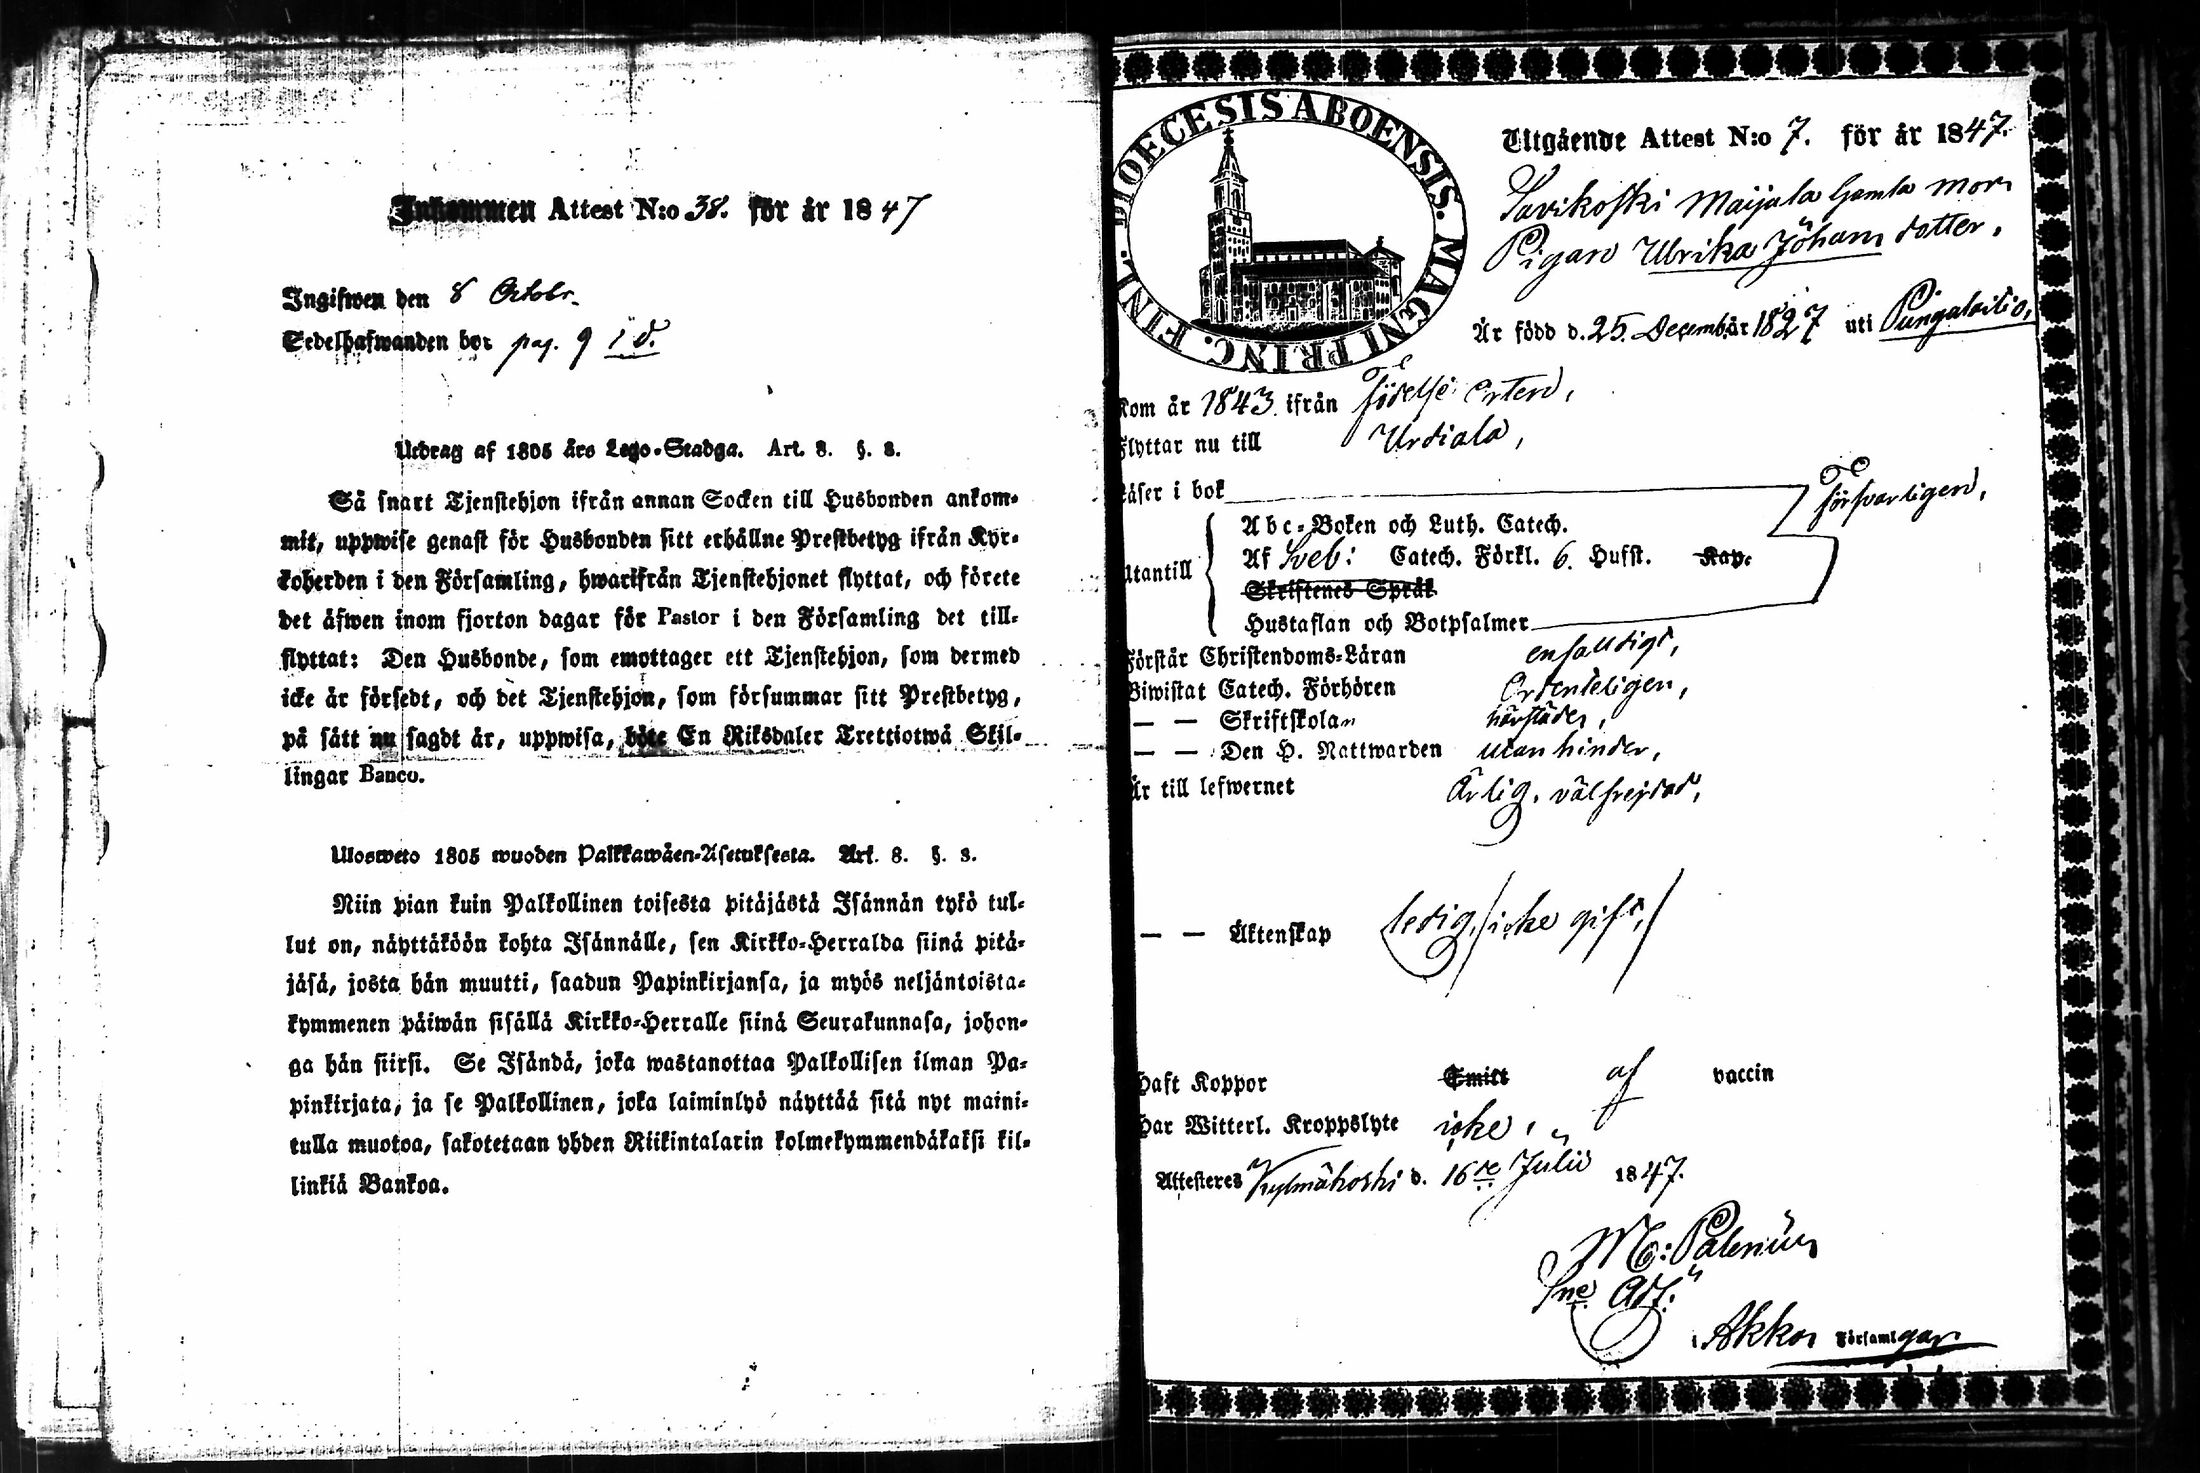 Inkommen Attest N:o 38. för år 1847
Ingifwen den 8 Octobr.
Sedelhafwanden bor pag. 9 i d.
Utdrag af 1805 års Lego-Stadga. Art. 8. §. 8.
Så snart Tjenstehjon ifrån annan Socken till Husbonden ankom-
mit, uppwise genast för Husbonden sitt erhållne Prestbetyg ifrån Kyr-
koherden i den Församling, hwarifrån Tjenstehjonet flyttat, och förete
det äfwen inom fjorton dagar för Pastor i den Församling det till-
flyttat: Den Husbonde, som emottager ett Tjenstehjon, som dermed
icke är försedt, och det Tjenstehjon, som försummar sitt Prestbetyg,
på sätt nu sagdt är, uppwisa, böte En Riksdaler Trettiotwå Skil-
lingar Banco.
Ulosweto 1805 wuoden Palkkawäen-Asetuksesta. Art. 8. §. 8.
Niin pian kuin Palkollinen toisesta pitäjästä Isännän tykö tul-
lut on, näyttäköön kohta Isännälle, sen Kirkko-Herralda siinä pitä-
jäsä, josta hän muutti, saadun Papinkirjansa, ja myös neljäntoista-
kymmenen päiwän sisällä Kirkko-Herralle siinä Seurakunnasa, johon-
ga hän siirsi. Se Isändä, joka wastanottaa Palkollisen ilman Pa-
pinkirjata, ja se Palkollinen, joka laiminlyö näyttää sitä nyt maini-
tulla muotoa, sakotetaan yhden Riikintalarin kolmekymmendäkaksi kil-
linkiä Bankoa.
DIOECESIS ABOENSIS. MAGNI PRINC. FINL.
Utgående Attest N:o 7. för år 1847.
Savikoski Maijala Gamla mor
Pigan Ulrika Johans dotter,
Är född d. 25. Decemb. år 1827 uti Pungalaitio,
Kom år 1843. ifrån födelse orten,
Flyttar nu till Urdiala,
Läser i bok
försvarligen,
Utantill
Abc-Boken och Luth. Catech.
Af Sveb: Catech. Förkl. 6. Hufst. Kap.
Skriftenes Språk
Hustaflan och Botpsalmer
Förstår Christendoms-Läran enfaldigt,
Biwistat Catech. Förhören Ordenteligen,
— — Skriftskolan härstädes,
— — Den H. Nattwarden utan hinder,
Är till lefwernet Ärlig, välfrejdad,
— — Äktenskap ledig, (icke gift,)
Haft Koppor Smitt af vaccin
Har Witterl. Kroppslyte icke,
Attesteres Kylmäkoski d. 16de Julii 1847.
M: Palenius
Sne Adj.
i Akkas Församl gar